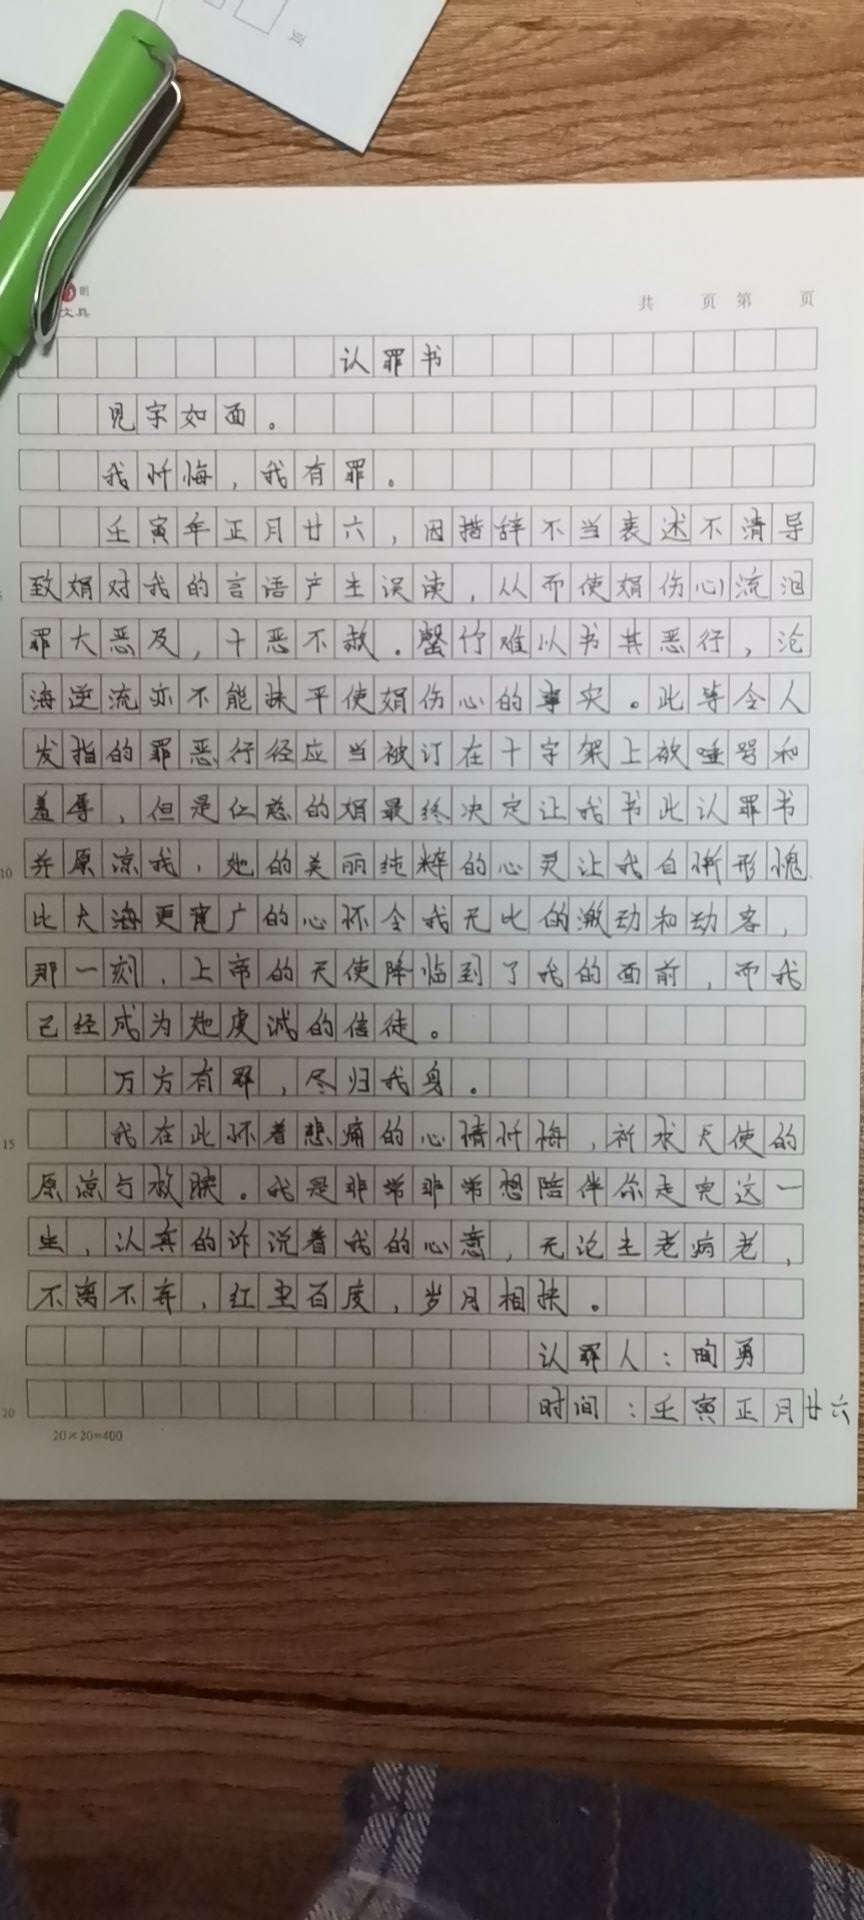 页
明
文具
共 页 第 页
认罪书
见字如面。
我忏悔，我有罪。
壬寅年正月廿六，因措辞不当表述不清导
致娟对我的言语产生误读，从而使娟伤心流泪
罪大恶及，十恶不赦。罄竹难以书其恶行，沧
海逆流亦不能抹平使娟伤心的事实。此等令人
发指的罪恶行径应当被订在十字架上被唾骂和
羞辱，但是仁慈的娟最终决定让我书此认罪书
并原凉我，她的美丽纯粹的心灵让我自惭形愧
比大海更宽广的心怀令我无比的激动和动容，
那一刻，上帝的天使降临到了我的面前，而我
己经成为她虔诚的信徒。
万方有罪，尽归我身。
我在此怀着悲痛的心情忏悔，祈求天使的
原凉与救赎。我是非常非常想陪伴你走完这一
生，认真的诉说着我的心意，无论生老病老，
不离不弃，红尘百度，岁月相扶。
认罪人：陶勇
时间：壬寅正月廿六
5
10
15
20
20×20=400